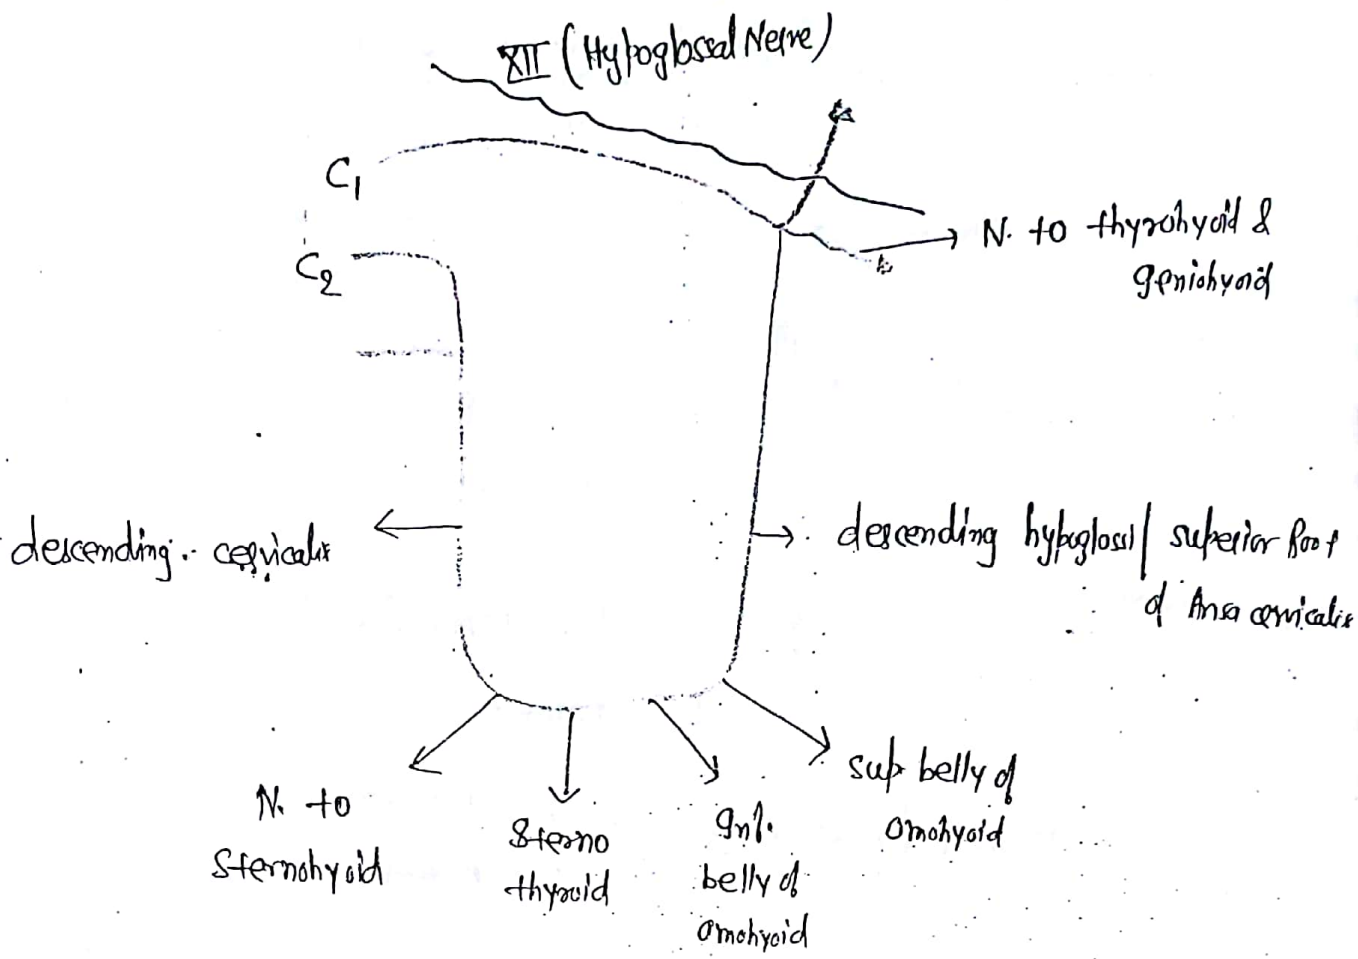 XII (Hypoglossal Nerve)
C1
C2
N. to thyrohyoid &
geniohyoid
descending cervicalis
descending hypoglossl / superior Root
of Ansa cervicalis
N. to
sternohyoid
Sterno
thyroid
Inf.
belly of
omohyoid
sup belly of
omohyoid